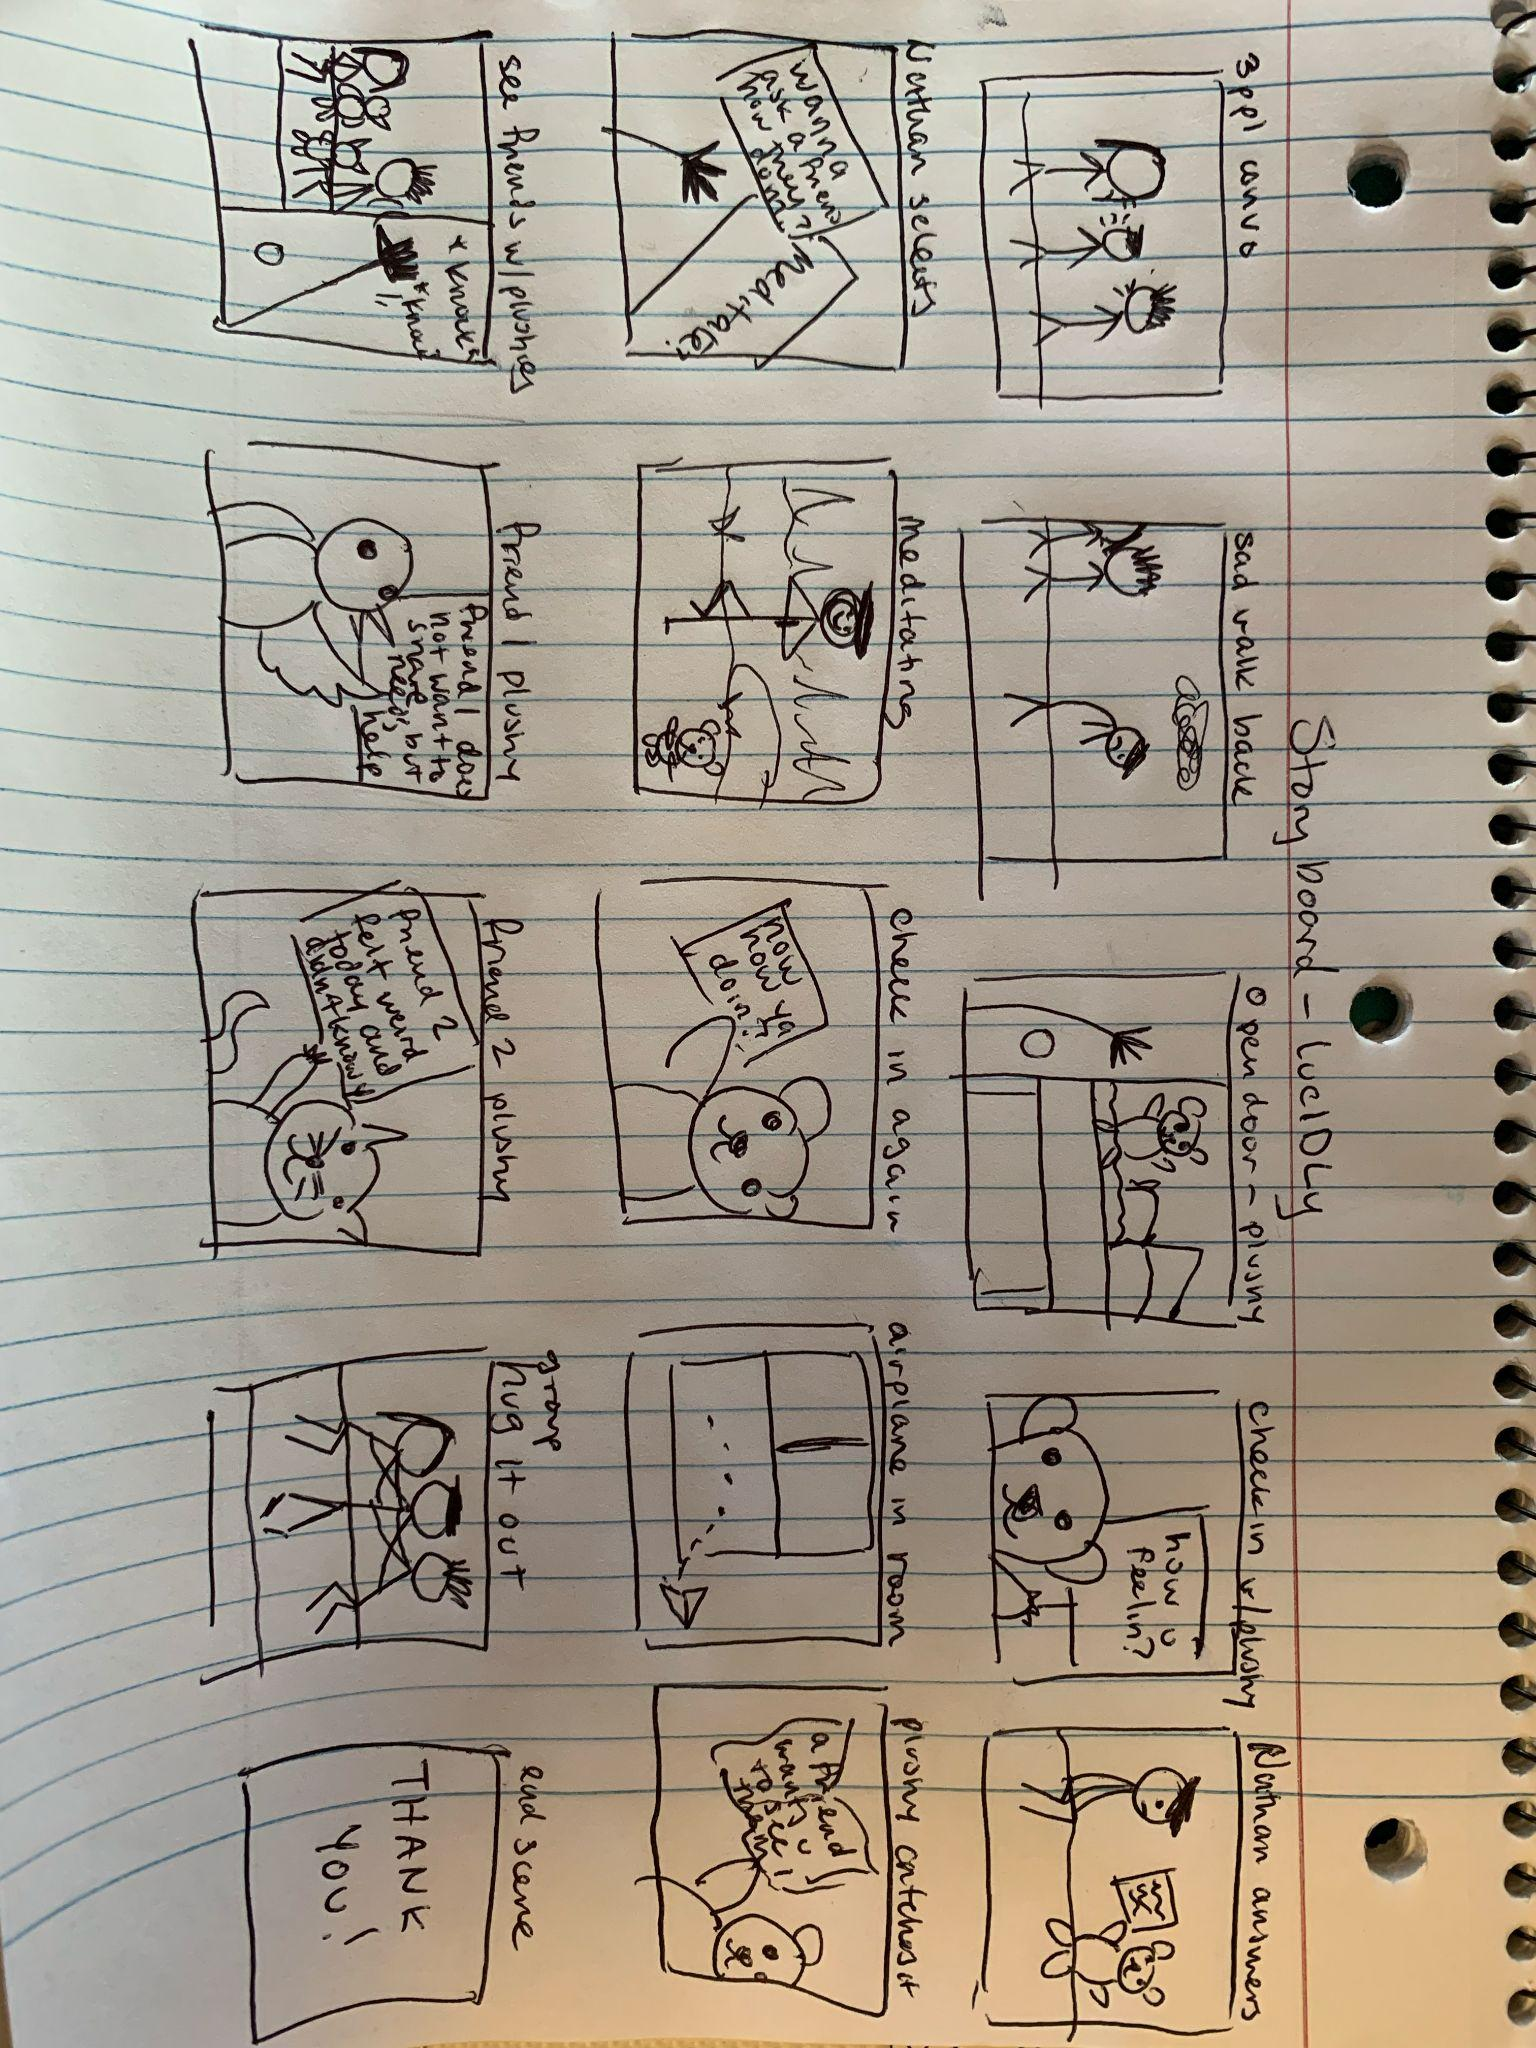 Story board - lucIDLy
3 ppl convo
sad walk back
open door - plushy
check in w/plushy
how u
feelin?
Nathan answers
Nathan selects
wanna
ask a friend
how they
doin?
meditate?
meditating
check in again
now
how ya
doin?
airplane in room
plushy catches it
a friend
wants u
to see
them!
see friends w/plushies
*knock*
*knock*
friend 1 plushy
friend 1 does
not want to
share
needs but
help
friend 2 plushy
friend 2
felt weird
today and
didn't know
group
hug it out
end scene
THANK
YOU!